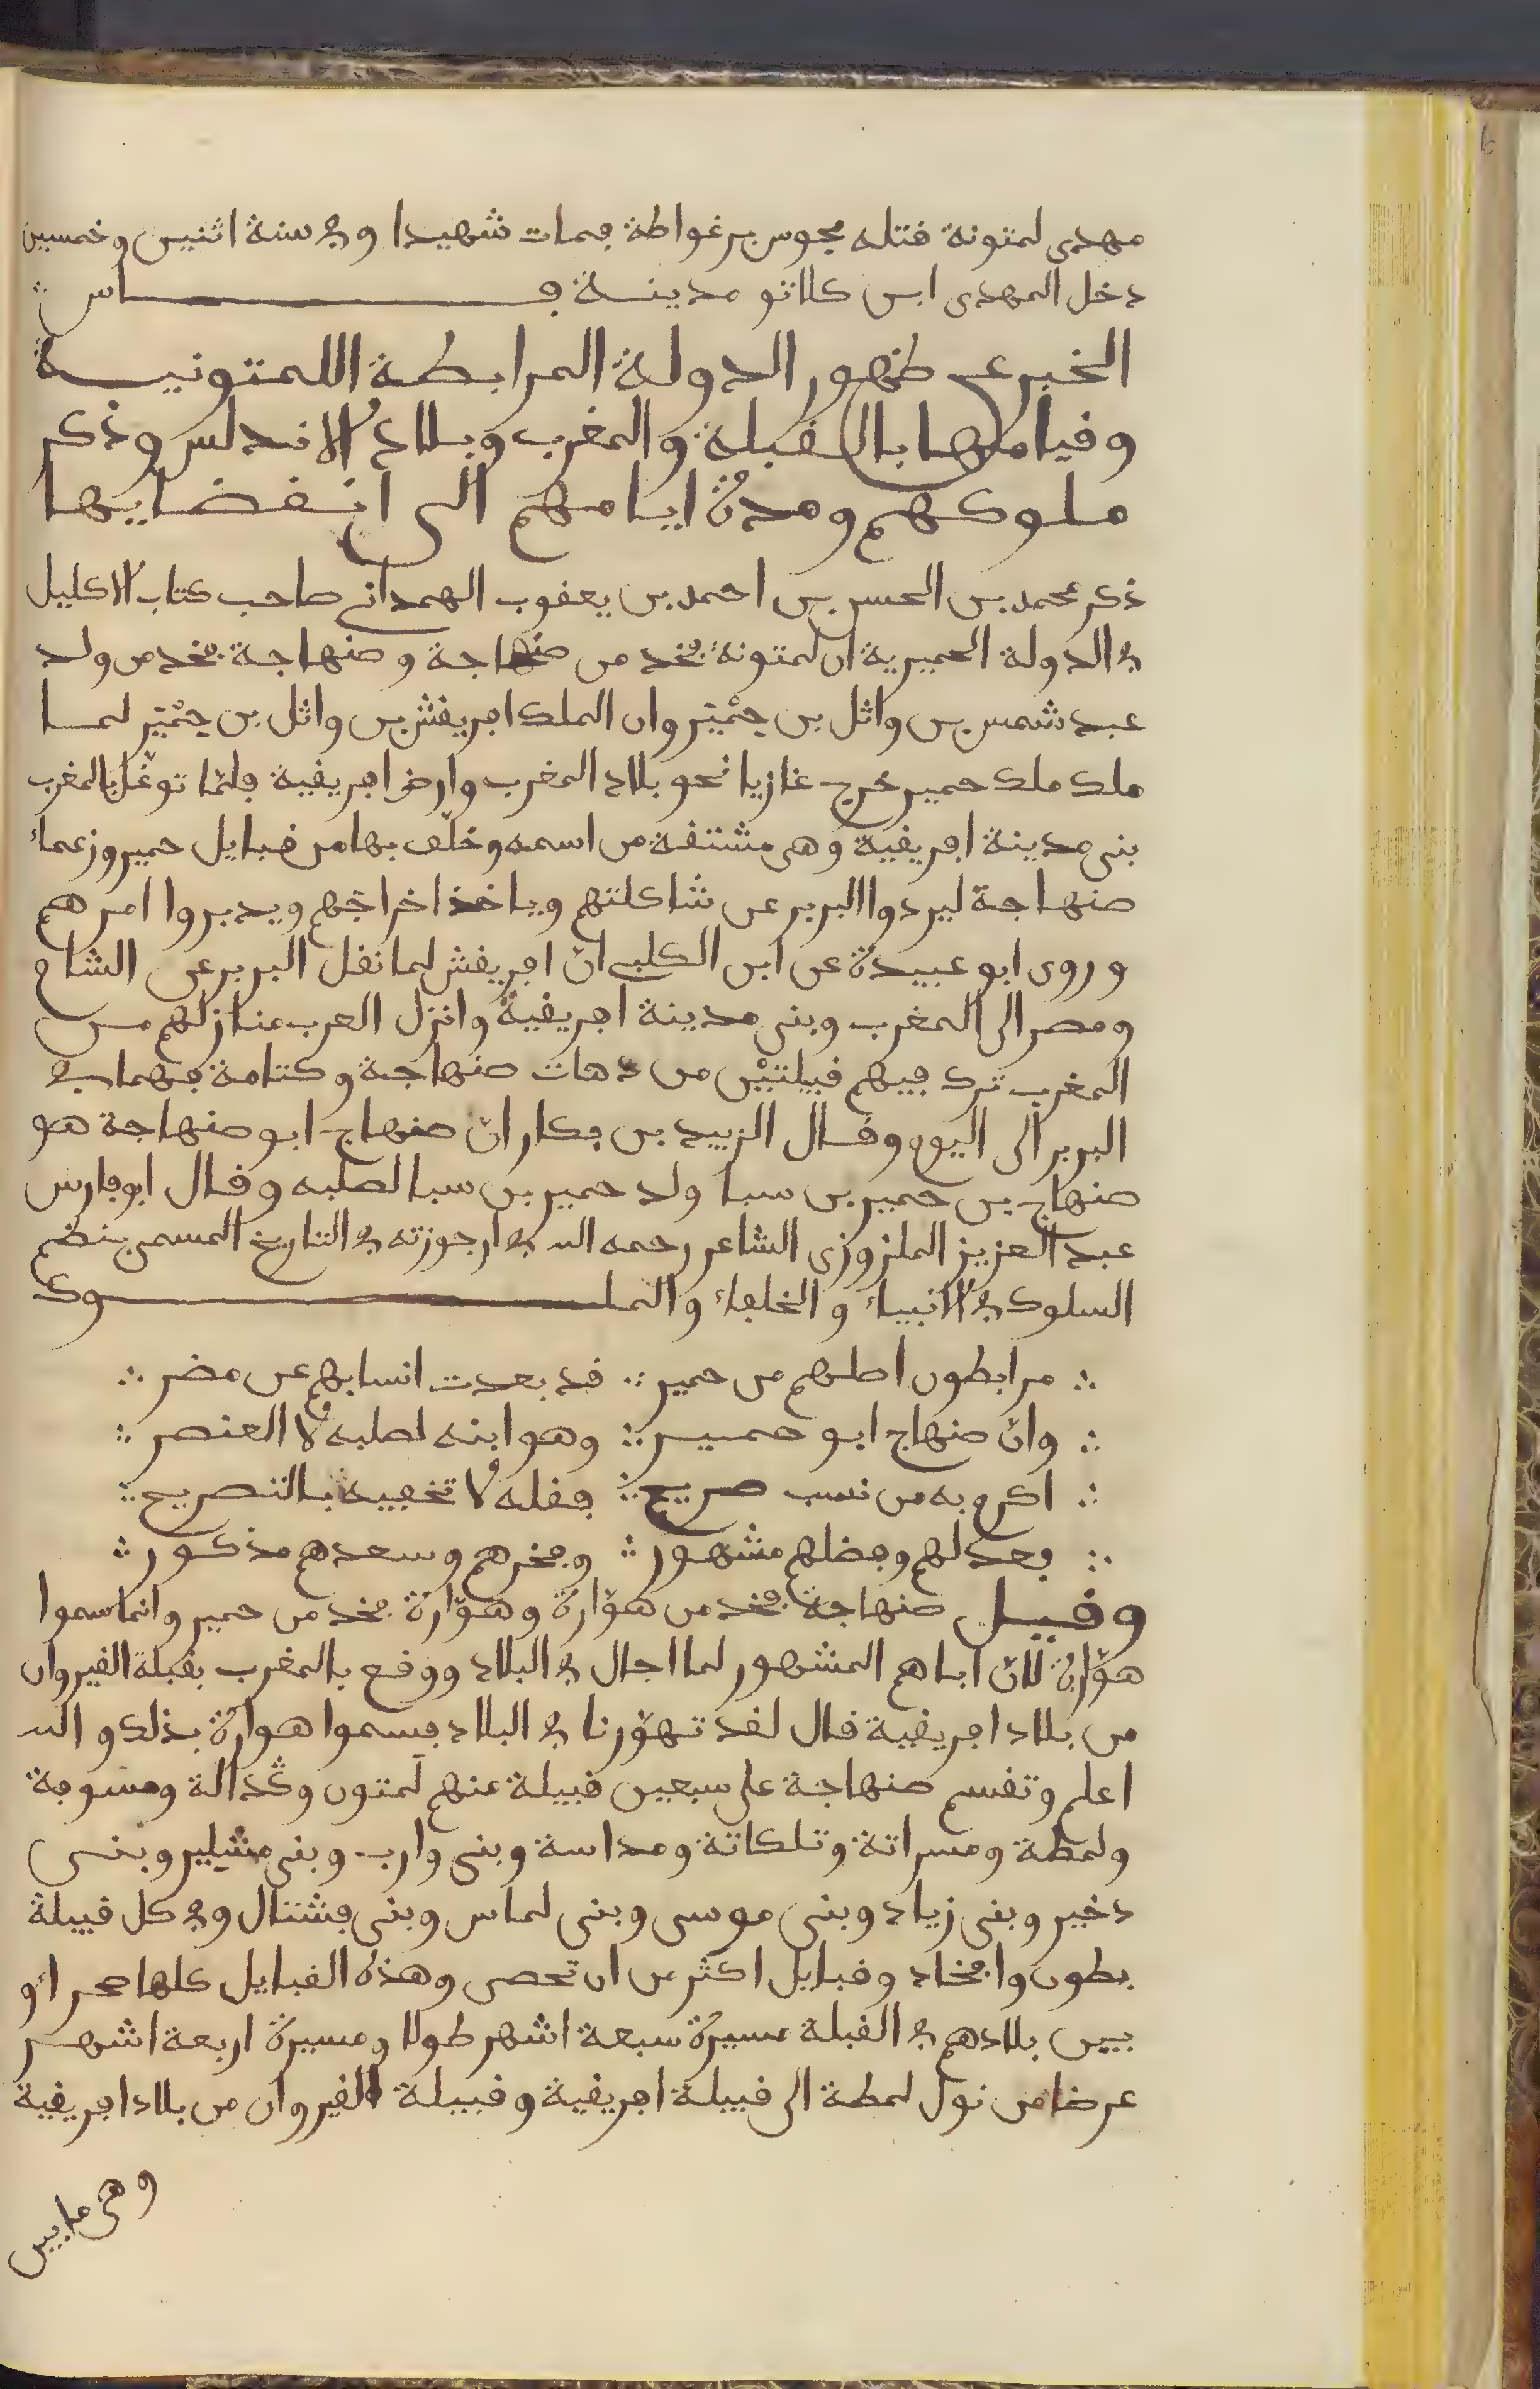 مهدى لمتونة قتله مجوس برغواطة فمات شهيدا وفى سنة اثنين وخمسين
دخل المهدى ابن كلاتو مدينة فــاس
الخبر عن ظهور الدولة المرابطة اللمتونية
وقيامها بالقبلة والمغرب وبلاد الاندلس وذكر
ملوكهم ومدة ايامهم الى انقضايها
ذكر محمد بن الحسن بن احمد بن يعقوب الهمدانى صاحب كتاب الاكليل
فى الدولة الحميرية ان لمتونة فخد من صنهاجة وصنهاجة فخد من ولد
عبد شمس بن واثل بن حِمْيَر وان الملك افريقش بن واثل بن حِمْيَر لما
ملك ملك حمير خرج غازيا نحو بلاد المغرب وارض افريقية فلمّا توغّل بالمغرب
بنى مدينة افريقية وهى مشتقة من اسمه وخلّف بها من قبايل حمير وزعماء
صنهاجة ليردوا البربر عن شاكلتهم وياخذ اخراجهم ويدبروا امرهم
وروى ابو عبيدة عن ابن الكلبى انّ افريقش لما نقل البربر عن الشام
ومصر الى المغرب وبنى مدينة افريقية وانزل العرب منازلهم من
المغرب ترك فيهم قبيلتيْن من دهات صنهاجة وكتامة فهما فى
البربر الى اليوم وقال الزبيد بن بكار انّ صنهاج ابو صنهاجة هو
صنهاج بن حمير بن سبا ولد حمير بن سبا لصلبه وقال ابو فارس
عبد العزيز الملزوزى الشاعر رحمه الله فى ارجوزته فى التاريخ المسمى بنظم
السلوك فى الانبياء والخلفاء والملــوك
∴ مرابطون اصلهم من حمير ∴ قد بعدت انسابهم عن مضر ∴
∴ وانّ صنهاج ابو حمير ∴ وهو ابنه لصلبه لا العنصر ∴
∴ اكرم به من نسب صريح ∴ فقله لا تخفيه بالتصريح ∴
∴ فعدلهم وفضلهم مشهور ∴ وفخرهم وسعدهم مذكور ∴
وقيل صنهاجة فخد من هوّارة وهوّارة فخد من حمير وانما سموا
هوّارة لانّ اباهم المشهور لما اجال فى البلاد ووقع بالمغرب بقبلة القيروان
من بلاد افريقية قال لقد تهوّرنا فى البلاد فسموا هوارة بذلك والله
اعلم وتقسم صنهاجة على سبعين قبيلة منهم لَمتون وڭدالة ومسوفة
ولمطة ومسراتة وتلكاتة ومداسة وبنى وارب وبنى مشلير وبنى
دخير وبنى زياد وبنى موسى وبنى لماس وبنى فشتال وفى كل قبيلة
بطون وافخاد وقبايل اكثر من ان تحصى وهذه القبايل كلها صحراءو
ييين بلادهم فى القبلة مسيرة سبعة اشهر طولا ومسيرة اربعة اشهر
عرضا من نول لمطة الى قبيلة افريقية وقبيلة القيروان من بلاد افريقية
وهى مابين